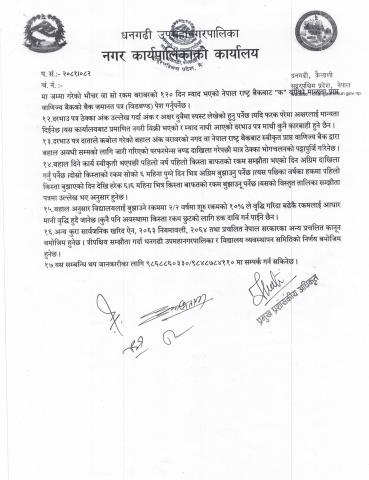 धनगढी उपमहानगरपालिका
नगर कार्यपालिकाको कार्यालय
प. सं.:- २०८१/०८२
च. नं.:-
धनगढी, कैलाली
सुदूरपश्चिम प्रदेश, नेपाल
मा जम्मा गरेको भौचर वा सो रकम बराबरको १२० दिन म्याद भएको नेपाल राष्ट्र बैंकबाट "क" वर्गको मान्यता प्राप्त
वाणिज्य बैंकको बैंक जमानत पत्र (विडबण्ड) पेश गर्नुपर्नेछ।
१२.दरभाउ पत्र ठेक्का अंक उल्लेख गर्दा अंक र अक्षर दुवैमा स्पस्ट लेखेको हुनु पर्नेछ त्यदि फरक परेमा अक्षरलाई मान्यता
दिईनेछ ।यस कार्यालयबाट प्रमाणित नगरी बिक्री भएको र म्याद नाघी आएको दरभाउ पत्र माथी कुनै कारबाही हुने छैन ।
१३.दरभाउ पत्र दाताले कबोल गरेको बहाल अंक बराबरको नगद वा नेपाल राष्ट्र बैंकबाट स्वीकृत प्राप्त वाणिज्य बैंक द्वारा
बहाल अवधी सम्मको लागि जारी गरिएको परफरमेन्स बण्ड दाखिला गरेपछी मात्र ठेक्का भोगचलनको पट्टापुर्जि गरिनेछ ।
१४.बहाल दिने कार्य स्वीकृती भएपछी पहिलो वर्ष पहिलो किस्ता बाफतको रकम सम्झौता भएको दिन अग्रिम दाखिला
गर्नु पर्नेछ ।दोस्रो किस्ताको रकम सोको ६ महिना पुग्ने दिन भित्र अग्रिम बुझाउनु पर्नेछ ।त्यस पछिका वर्षका हकमा पहिलो
किस्ता बुझाएको दिन देखि हरेक ६/६ महिना भित्र किस्ता बाफतको रकम बुझाउनु पर्नेछ ।यसको विस्तृत तालिका सम्झौता
पत्रमा उल्लेख भए अनुसार हुनेछ।
१५.बहाल अनुसार विद्यालयलाई बुझाउने रकममा २/२ वर्षमा शुरु रकमको १०% ले वृद्धि गरिदा बढेकै रकमलाई आधार
मानी वृद्धि हुदै जानेछ ।कुनै पनि अवस्थामा किस्ता रकम छुटको लागि हक दावि गर्न पाईने छैन।
१६.अन्य कुरा सार्वजनिक खरिद ऐन, २०६३ नियमावली, २०६४ तथा प्रचलित नेपाल सरकारका अन्य प्रचलित कानून
बमोजिम हुनेछ। त्रीपक्षिय सम्झौता गर्दा धनगढी उपमहानगरपालिका र विद्यालय व्यवस्थापन समितिको निर्णय बमोजिम
हुनेछ।
१७.यस सम्बन्धि थप जानकारीका लागि ९८६८८६०३३०/९८४८७८४११० मा सम्पर्क गर्न सकिनेछ ।
प्रमुख प्रशासकीय अधिकृत